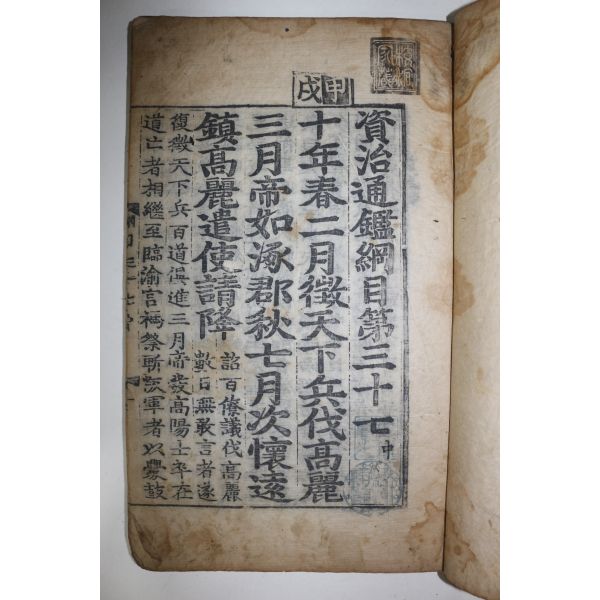 甲戌
資治通鑑綱目第三十七中
十年春二月徵天下兵伐高麗
三月帝如涿郡秋七月次懷遠
鎮高麗遣使請降
詔百僚議伐高麗
數日無敢言者遂
復徵天下兵百道俱進三月帝發高陽士卒在
道亡者相繼至臨渝宮禡祭斬叛軍者以釁鼓